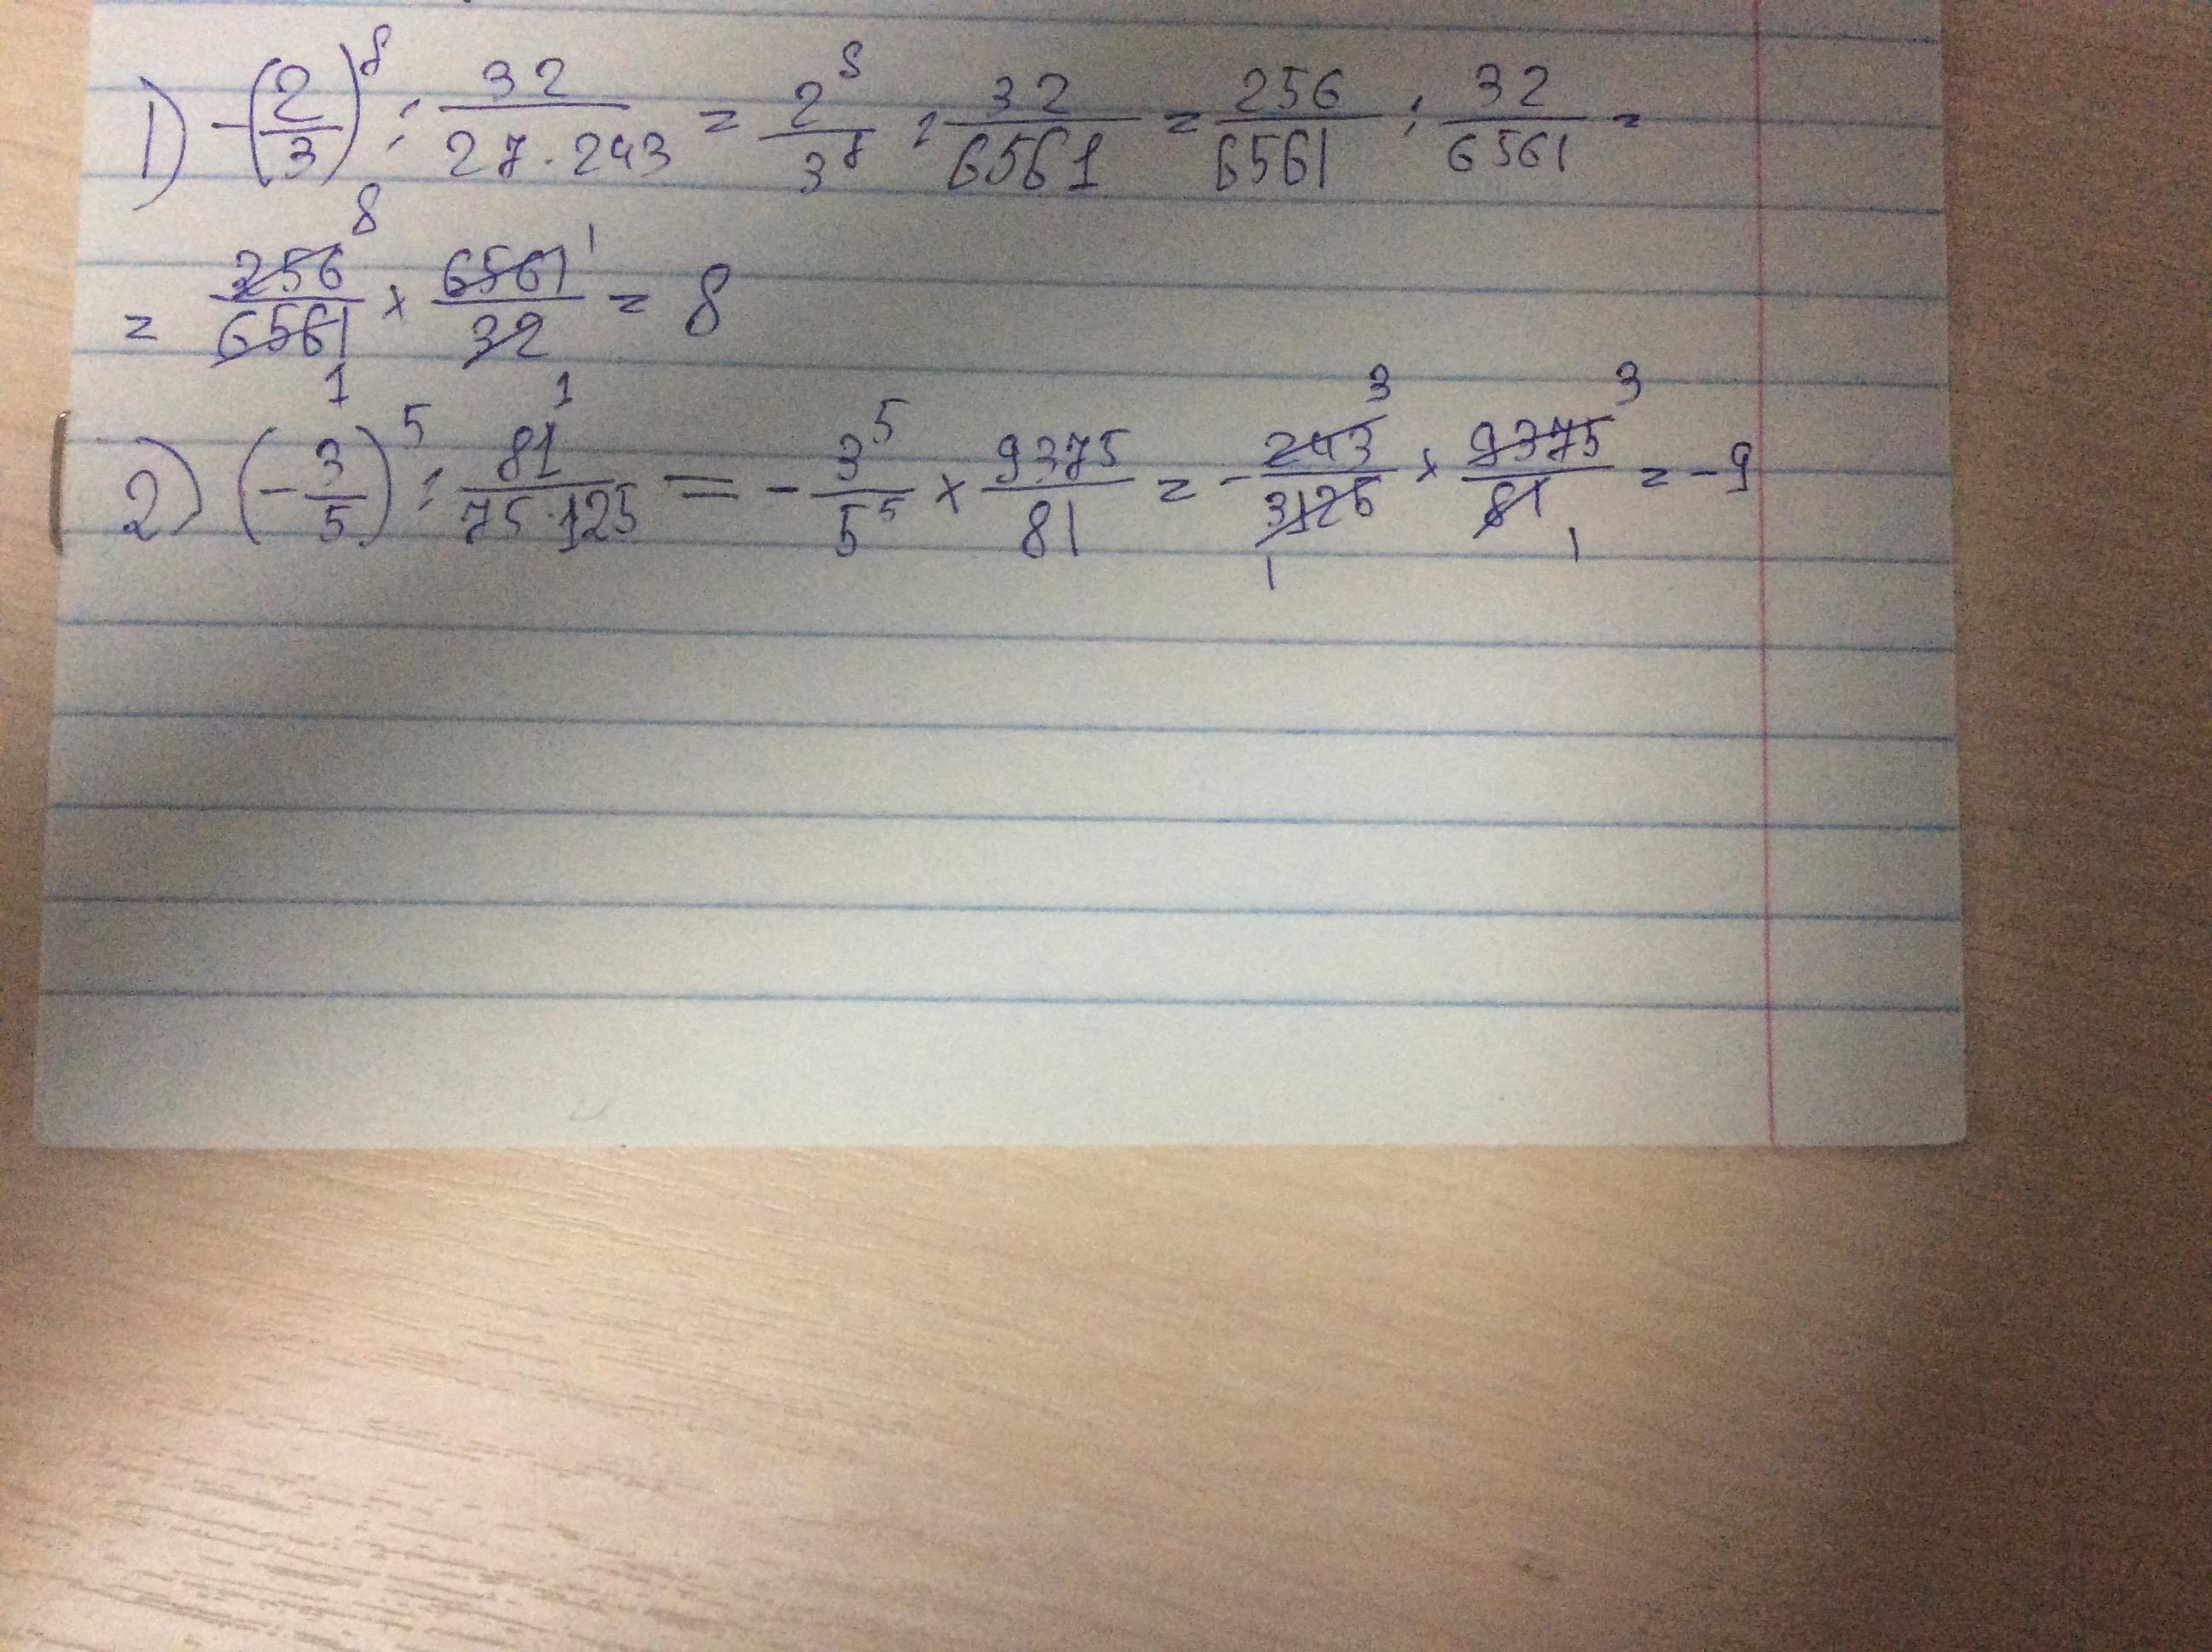 1) -(2/3)^8 : 32/(27·243) = 2^8/3^8 : 32/6561 = 256/6561 : 32/6561 =
= 256/6561 × 6561/32 = 8
2) (-3/5)^5 : 81/(75·125) = -3^5/5^5 × 9375/81 = -243/3125 × 9375/81 = -9